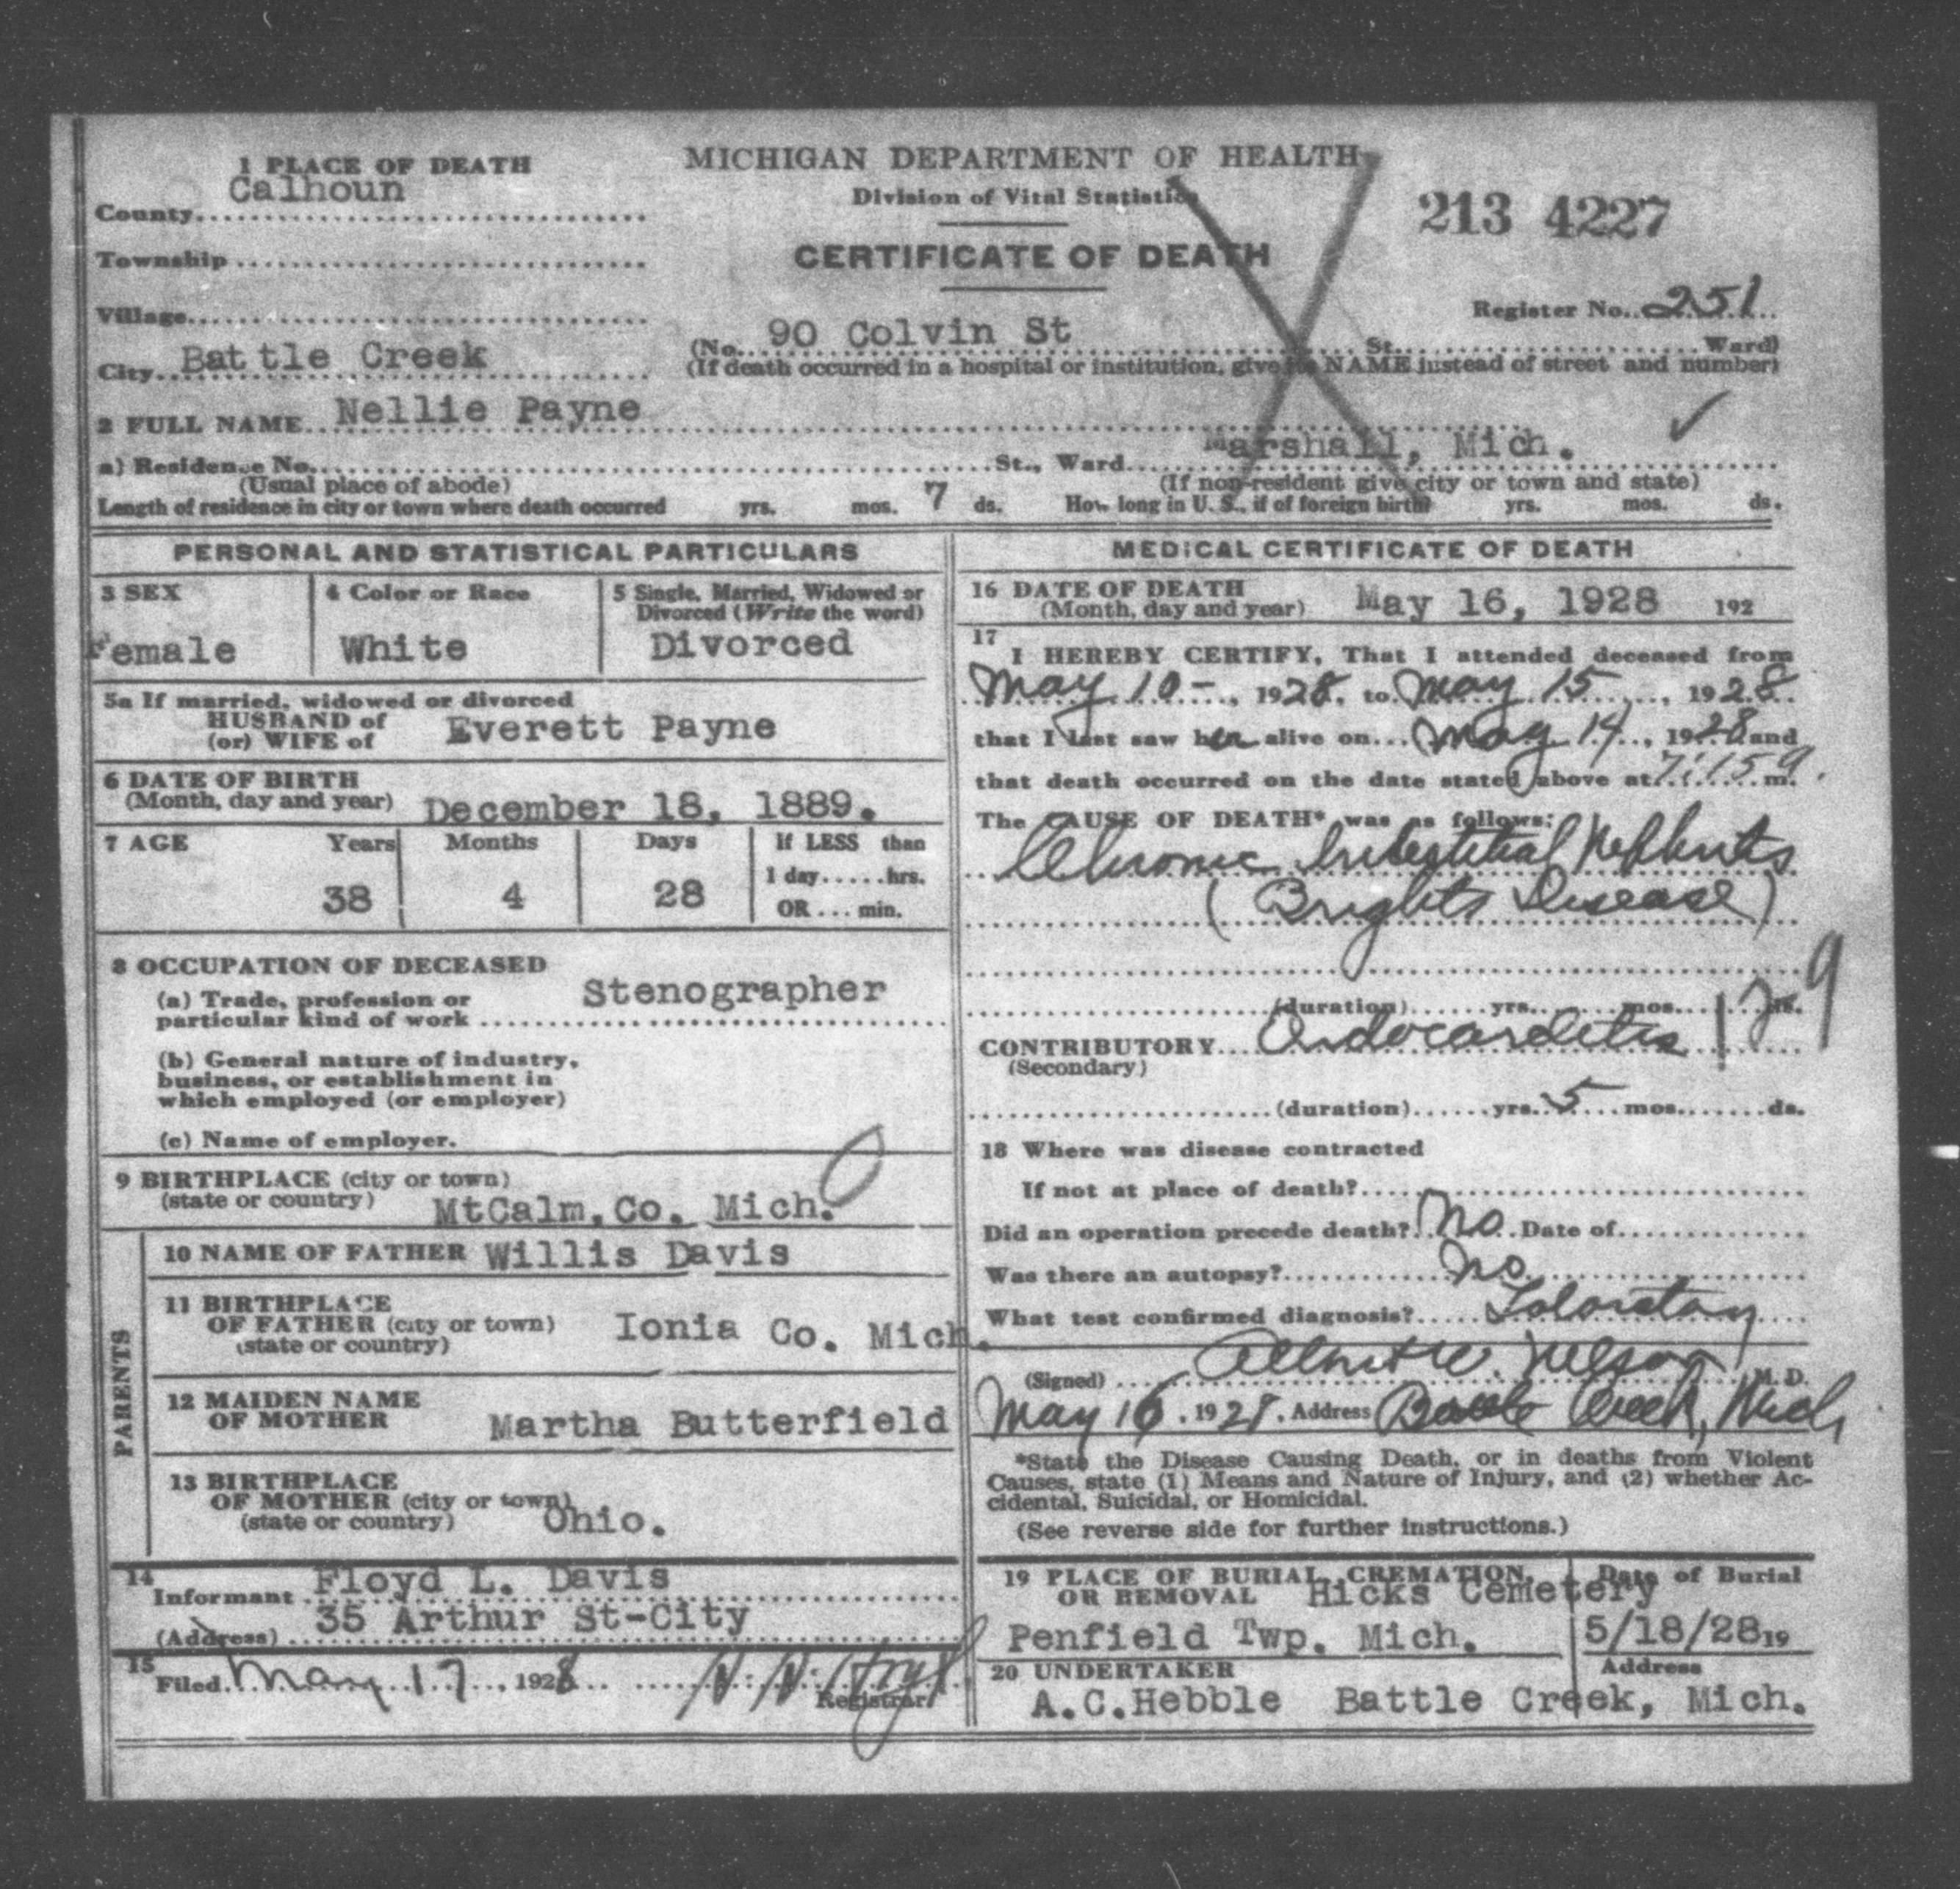 1 PLACE OF DEATH
MICHIGAN DEPARTMENT OF HEALTH
Division of Vital Statistics
CERTIFICATE OF DEATH
213 4227
County Calhoun
Township
Village
Register No. 251
City Battle Creek
(No. 90 Colvin St St. Ward)
(If death occurred in a hospital or institution, give its NAME instead of street and number)
2 FULL NAME Nellie Payne
a) Residence No. St., Ward Marshall, Mich.
(Usual place of abode) (If non-resident give city or town and state)
Length of residence in city or town where death occurred yrs. mos. 7 ds. How long in U. S., if of foreign birth? yrs. mos. ds.
PERSONAL AND STATISTICAL PARTICULARS
3 SEX
Female
4 Color or Race
White
5 Single, Married, Widowed or
Divorced (Write the word)
Divorced
5a If married, widowed or divorced
HUSBAND of
(or) WIFE of Everett Payne
6 DATE OF BIRTH
(Month, day and year) December 18, 1889.
7 AGE Years Months Days If LESS than
1 day......hrs.
38 4 28
OR ... min.
8 OCCUPATION OF DECEASED
(a) Trade, profession or
particular kind of work Stenographer
(b) General nature of industry,
business, or establishment in
which employed (or employer)
(c) Name of employer.
9 BIRTHPLACE (city or town)
(state or country) MtCalm.Co. Mich.
PARENTS
10 NAME OF FATHER Willis Davis
11 BIRTHPLACE
OF FATHER (city or town)
(state or country) Ionia Co. Mich.
12 MAIDEN NAME
OF MOTHER Martha Butterfield
13 BIRTHPLACE
OF MOTHER (city or town)
(state or country) Ohio.
14
Informant Floyd L. Davis
(Address) 35 Arthur St-City
15
Filed May 17, 1928
Registrar
MEDICAL CERTIFICATE OF DEATH
16 DATE OF DEATH
(Month, day and year) May 16, 1928 192
17
I HEREBY CERTIFY, That I attended deceased from
May 10-, 1928, to May 15, 1928
that I last saw her alive on May 14, 1928 and
that death occurred on the date stated above at 7:15 m.
The CAUSE OF DEATH* was as follows:
Chronic Interstitial Nephritis
(Brights Disease)
(duration) yrs. mos. ds.
129
CONTRIBUTORY Endocarditis
(Secondary)
(duration) yrs. 5 mos. ds.
18 Where was disease contracted
If not at place of death?
Did an operation precede death? No. Date of
Was there an autopsy? No
What test confirmed diagnosis? Laboratory
(Signed) W. Nelson M. D.
May 16, 1928, Address Battle Creek, Mich
*State the Disease Causing Death, or in deaths from Violent
Causes, state (1) Means and Nature of Injury, and (2) whether Ac-
cidental, Suicidal, or Homicidal.
(See reverse side for further instructions.)
19 PLACE OF BURIAL, CREMATION,
OR REMOVAL Hicks Cemetery
Penfield Twp. Mich.
Date of Burial
5/18/28 19
20 UNDERTAKER Address
A.C.Hebble Battle Creek, Mich.